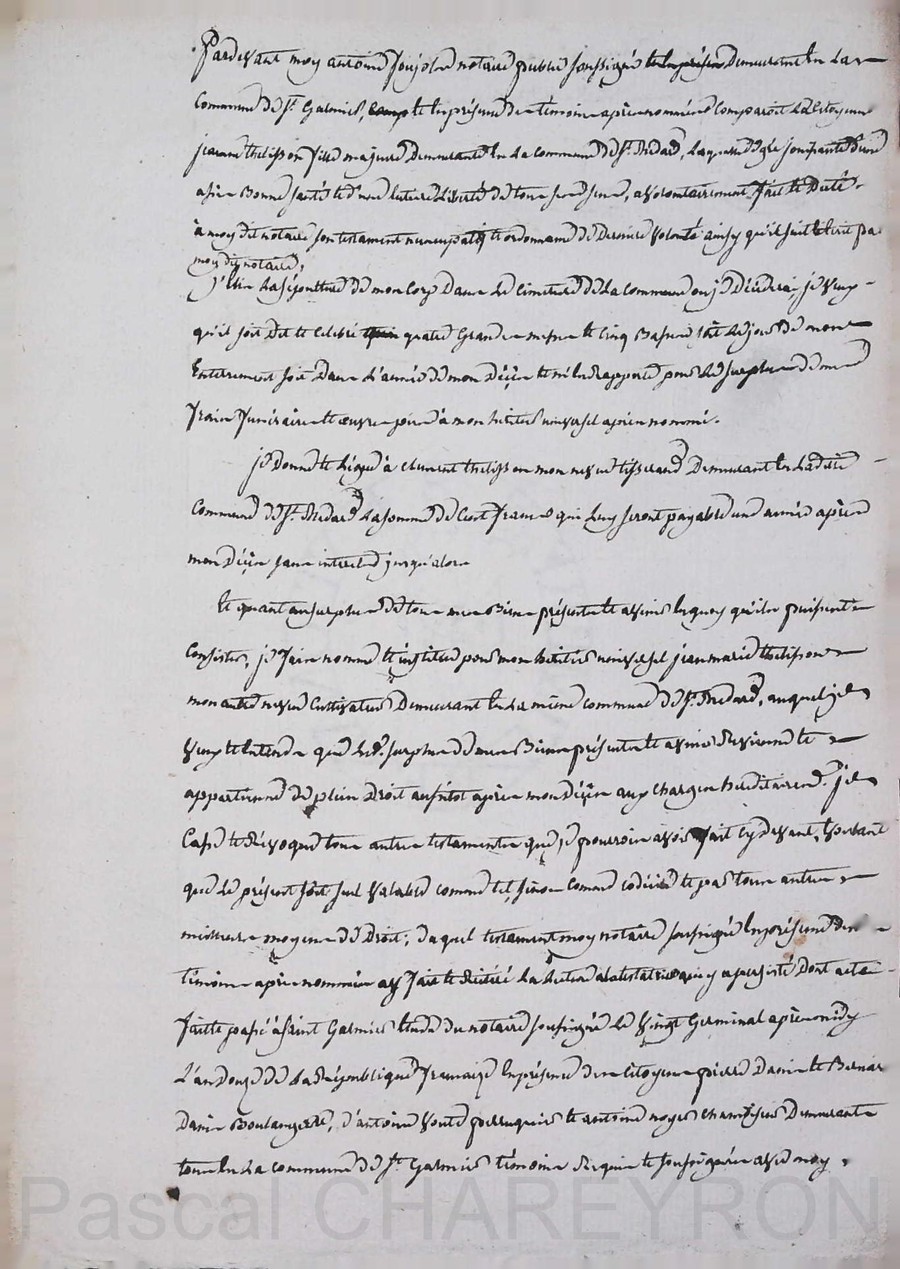 Pardevant moy antoine Joujolre notaire public soussigné demeurant En La
Commune de St. Galmier, et En présence des témoins après nommés Comparoit La Citoyenne
jeanne thelisson fille majeure Demeurante En La Commune de St. Médard, Laquelle de gré jouissante
a fait et Dicté
à moy dit notaire son testament nuncupatif et ordonnance de Dernière volonté ainsy qu'il suit Ecrit par
moy dit notaire,
j'élis La sépulture de mon Corps Dans Le Cimetière de La Commune ou je Décèderai, je veux
qu'il soit Dit et Célébré quatre Grandes messes et Cinq Basses tant Le jour de mon
Enterrement soit Dans L'année de mon Décès et m'En Rapporte pour Le surplus de mes
frais funéraires et œuvres pies à mon héritier universel après nommé.
je Donne et Lègue à Clement thelisson mon neveu tisserand Demeurant En Ladite
Commune de St. Médard La somme de Cent francs qui Luy seront payables une année après
mon Décès sans intérêts jusqu'alors
Et quant au surplus de tous mes Biens présents et avenir En quoy qu'ils puissent
Consister, je fais nomme et institue pour mon héritier universel jean marie thelisson
mon autre neveu Cultivateur Demeurant En La même commune de St. Médard, auquel je
veux et Entends que Led. surplus de mes Biens présents et avenir Revienne et
appartienne de plein Droit aussitôt après mon Décès aux charges héréditaires. je
Casse et Révoque tous autres testaments que je pourrois avoir fait Cy devant, voulant
que Le présent soit seul valable comme tel, sinon Comme codicile et par tous autres
meilleurs moyens de Droit; Duquel testament moy notaire soussigné En présence des
témoins après nommés ay fait et Réitéré La Lecture à La testatrice qui y a persisté Dont acte
fait et passé à Saint Galmier Etude du notaire soussigné Le vingt Germinal après midy
L'an Douze de La République française En présence des Citoyens pierre Danis et Bernard
Danis Boulangers, d'antoine perruquier et antoine noyer Demeurants
tous En La commune de St. Galmier témoins Requis et soussignés avec moy.
Pascal CHAREYRON